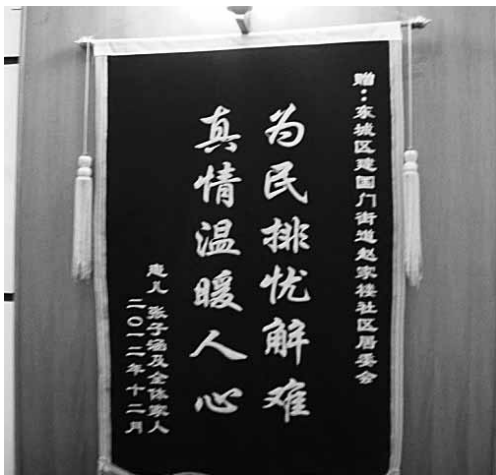 赠：东城区建国门街道赵家楼社区居委会
为民排忧解难
真情温暖人心
患儿 张子涵及全体家人
二〇一二年十二月